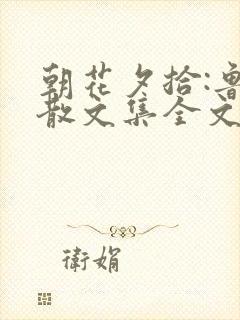 朝花夕拾:鲁
散文集全文
衛娟